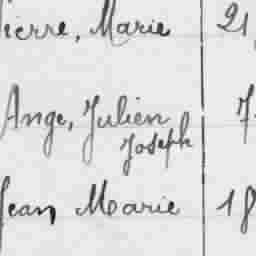 Pierre, Marie 21,
Ange, Julien 7
Joseph
Jean Marie 18